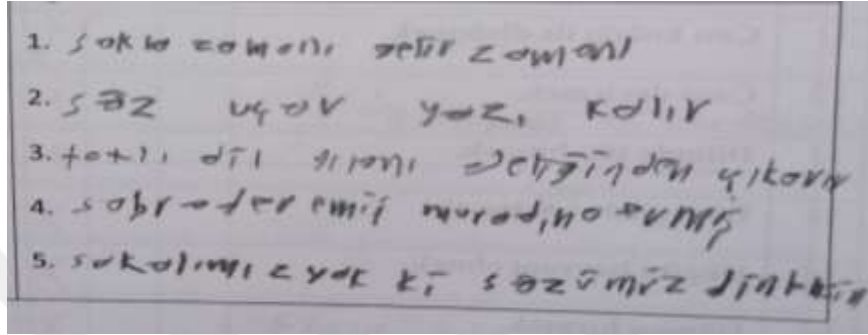 1. sakla zamanı gelir zamanı
2. söz uçar yazı kalır
3. tatlı dil yılanı deliğinden çıkarır
4. sabreden emiş muradına ermiş
5. sakalımız yok ki sözümüz dinlensin